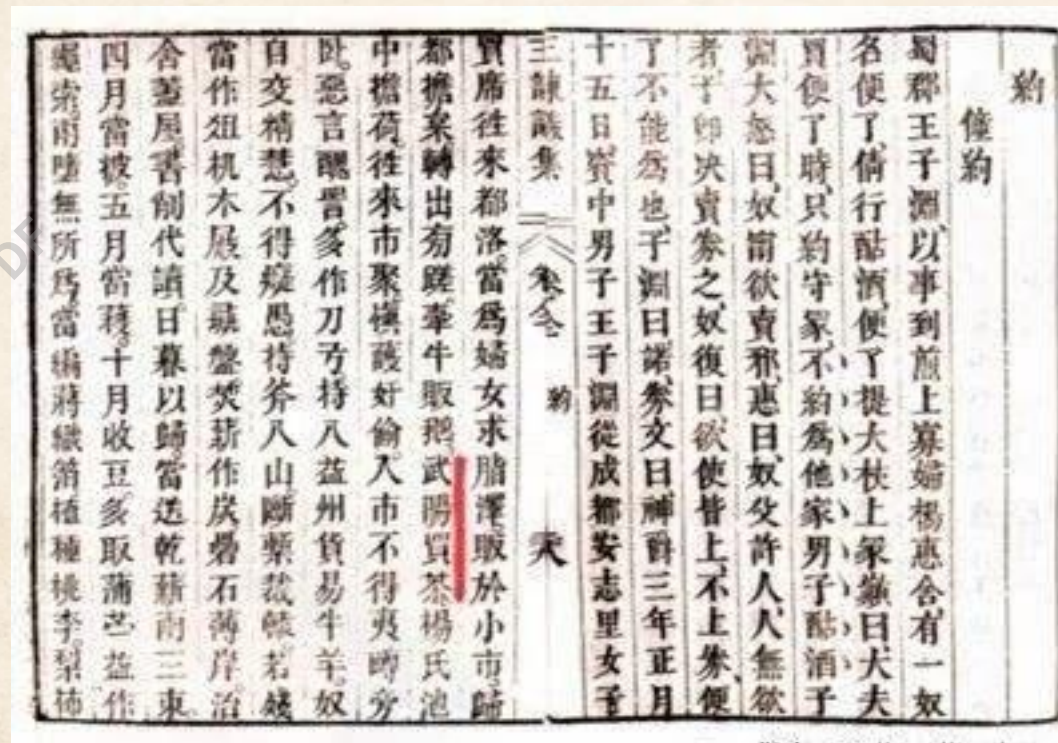 約
僮約
蜀郡王子淵以事到煎上寡婦楊惠舍有一奴
名便了倩行酤酒便了提大杖上冢巔曰大夫
買便了時只約守冢不約爲他家男子酤酒子
淵大怒曰奴甯欲賣邪惠曰奴父許人人無欲
者子卽決賣券之奴復曰欲使皆上不上券便
了不能爲也子淵曰諾券文曰神爵三年正月
十五日資中男子王子淵從成都安志里女子
三集 約
買席往來都洛當爲婦女求脂澤販於小市歸
都擔枲轉出旁蹉牽牛販鵝武陽買茶楊氏池
中擔荷往來市聚愼護奸偷入市不得夷蹲旁
臥惡言醜詈多作刀弓持入益州貨易牛羊奴
自交精慧不得癡愚持斧入山斷槧裁轅若殘
當作俎机木屐及彘盤焚薪作炭礨石薄岸治
舍蓋屋書削代牘日暮以歸當送乾薪兩三束
四月當披五月當穫十月收豆多取蒲苎益作
繩索雨墮無所爲當編蔣織箔植種桃李梨柿